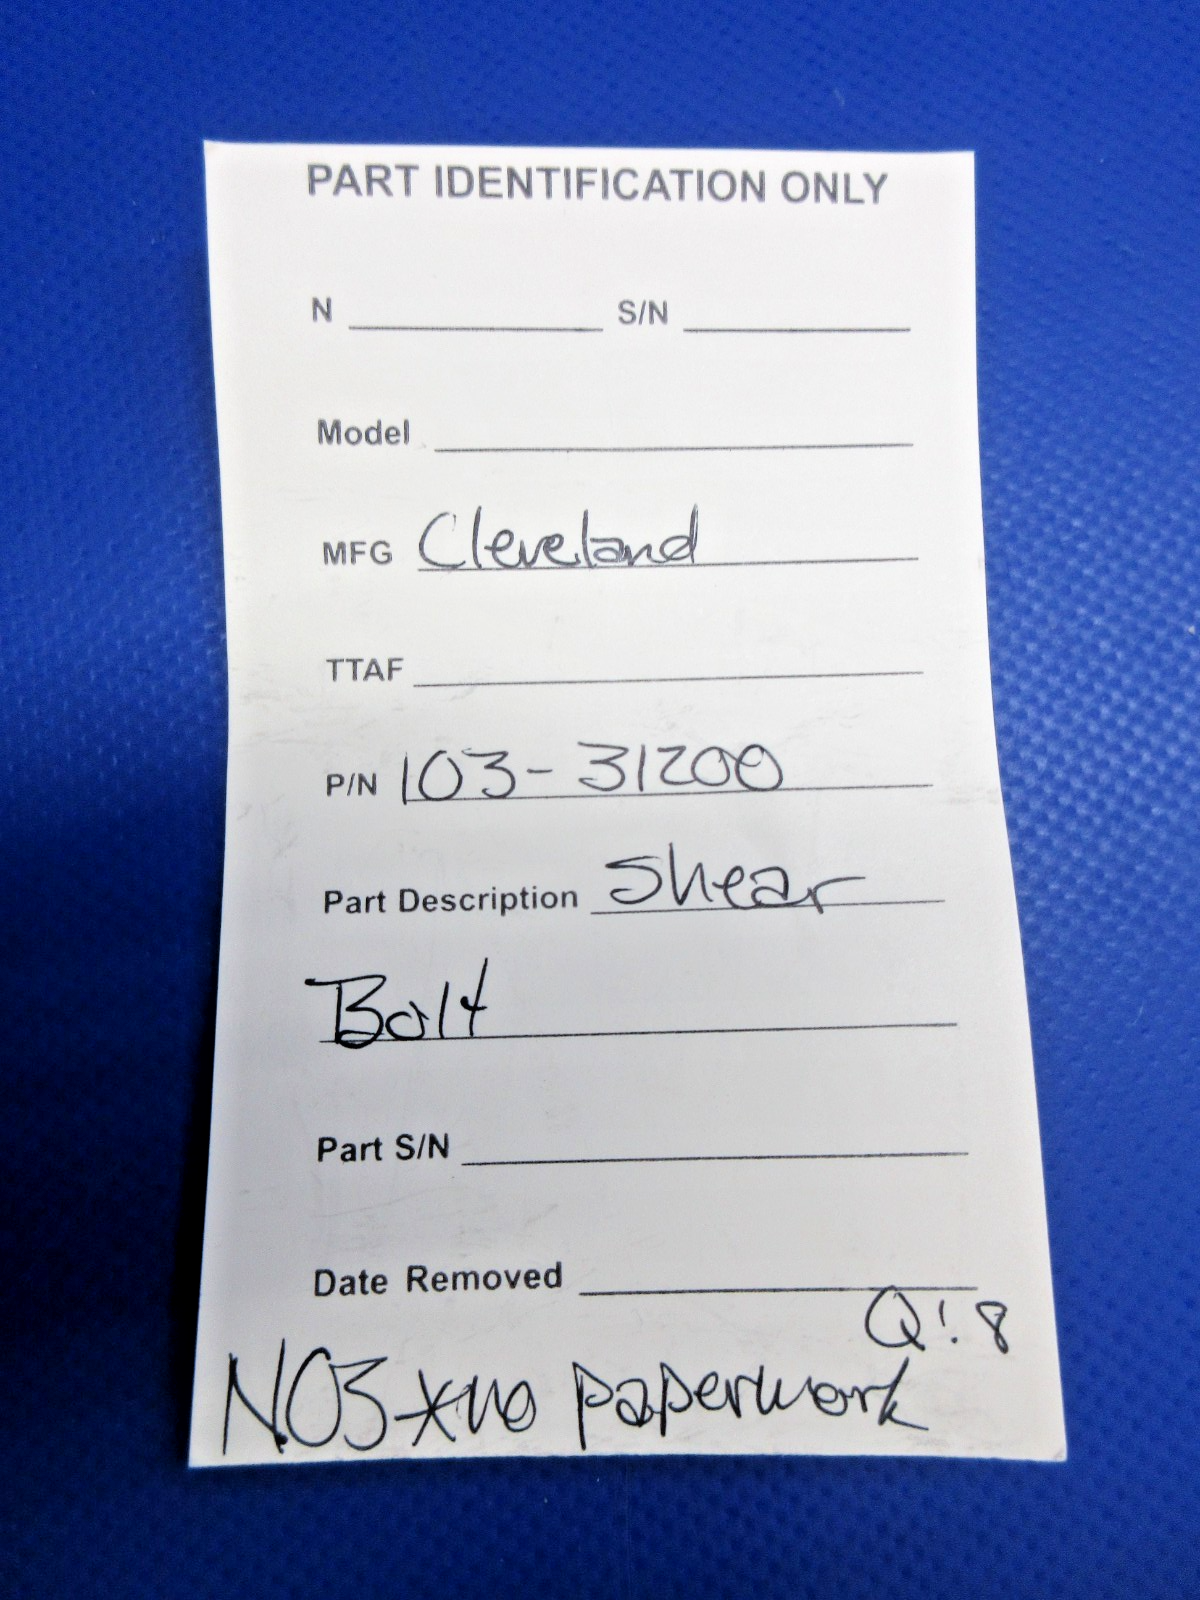 PART IDENTIFICATION ONLY
N S/N
Model
MFG Cleveland
TTAF
P/N 103-31200
Part Description Shear
Bolt
Part S/N
Date Removed
Q: 8
NOS *no paperwork